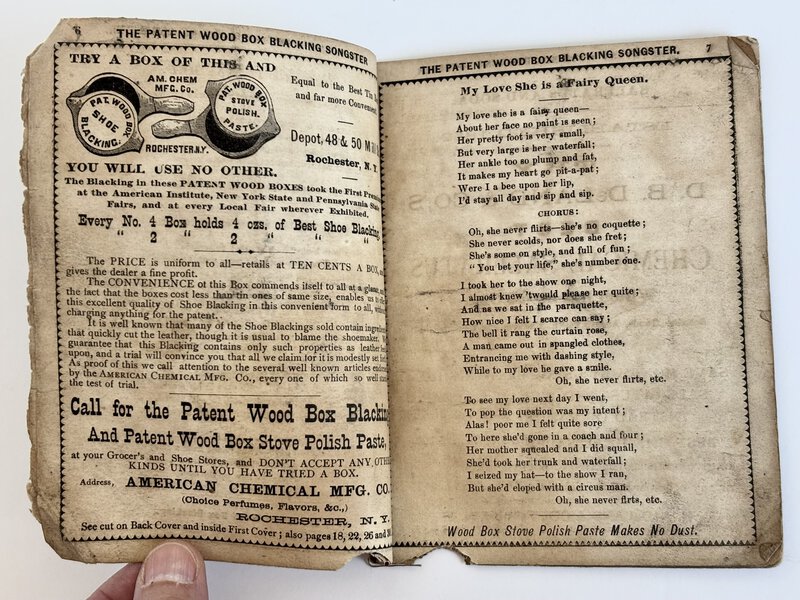 6
THE PATENT WOOD BOX BLACKING SONGSTER
TRY A BOX OF THIS AND
AM. CHEM
MFG. CO.
PAT. WOOD BOX
SHOE
BLACKING.
PAT. WOOD BOX
STOVE
POLISH.
PASTE.
ROCHESTER.N.Y.
Equal to the Best Tin
and far more Convenient
Depot, 48 & 50
Rochester, N. Y.
YOU WILL USE NO OTHER.
The Blacking in these PATENT WOOD BOXES took the First
at the American Institute, New York State and Pennsylvania State
Fairs, and at every Local Fair wherever Exhibited.
Every No. 4 Box holds 4 ozs. of Best Shoe Blacking
" 2 " 2 " " "
The PRICE is uniform to all—retails at TEN CENTS A BOX,
gives the dealer a fine profit.
The CONVENIENCE of this Box commends itself to all at a glance,
the fact that the boxes cost less than tin ones of same size, enables us
this excellent quality of Shoe Blacking in this convenient form to all,
charging anything for the patent.
It is well known that many of the Shoe Blackings sold contain
that quickly cut the leather, though it is usual to blame the shoemaker.
guarantee that this Blacking contains only such properties as leather
upon, and a trial will convince you that all we claim for it is modestly set
As proof of this we call attention to the several well known articles
by the AMERICAN CHEMICAL MFG. CO., every one of which so well
the test of trial.
Call for the Patent Wood Box Blacking
And Patent Wood Box Stove Polish Paste,
at your Grocer's and Shoe Stores, and DON'T ACCEPT ANY
KINDS UNTIL YOU HAVE TRIED A BOX.
Address, AMERICAN CHEMICAL MFG. CO.
(Choice Perfumes, Flavors, &c.,)
ROCHESTER, N. Y.
See cut on Back Cover and inside First Cover; also pages 18, 22, 26 and
THE PATENT WOOD BOX BLACKING SONGSTER. 7
My Love She is a Fairy Queen.
My love she is a fairy queen—
About her face no paint is seen;
Her pretty foot is very small,
But very large is her waterfall;
Her ankle too so plump and fat,
It makes my heart go pit-a-pat;
Were I a bee upon her lip,
I'd stay all day and sip and sip.
CHORUS:
Oh, she never flirts—she's no coquette;
She never scolds, nor does she fret;
She's some on style, and full of fun;
"You bet your life," she's number one.
I took her to the show one night,
I almost knew 'twould please her quite;
And as we sat in the paraquette,
How nice I felt I scarce can say;
The bell it rang the curtain rose,
A man came out in spangled clothes,
Entrancing me with dashing style,
While to my love he gave a smile.
Oh, she never flirts, etc.
To see my love next day I went,
To pop the question was my intent;
Alas! poor me I felt quite sore
To hear she'd gone in a coach and four;
Her mother squealed and I did squall,
She'd took her trunk and waterfall;
I seized my hat—to the show I ran,
But she'd eloped with a circus man.
Oh, she never flirts, etc.
Wood Box Stove Polish Paste Makes No Dust.